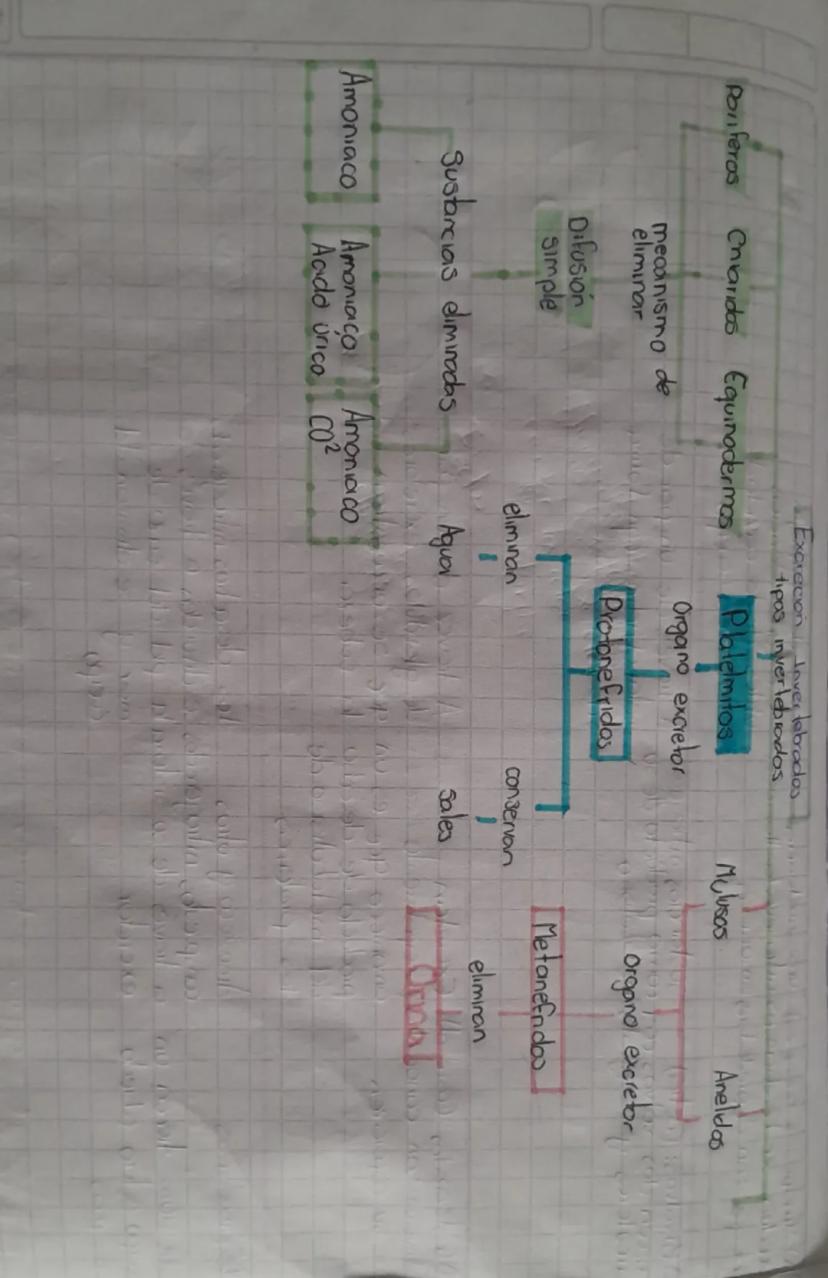 Excreción Invertebrados
tipos invertebrados
Poriferos Cnidarios Equinodermos Platelmitos Mulusos Anelidos
mecanismo de
eliminar
Difusión
simple
Sustancias eliminadas
Amoniaco
Amoniaco
Acido úrico
Amoniaco
CO²
Organo excretor
Protonefridos
eliminan
Agua
conservan
sales
organo excretor
Metanefridos
eliminan
Orina